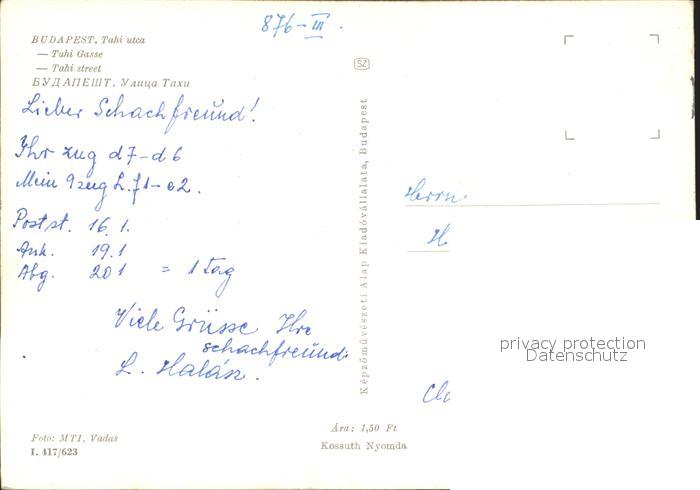 876-III.
BUDAPEST. Tahi utca
— Tahi Gasse
— Tahi street
БУДАПЕШТ. Улица Тахи
SZ
Lieber Schachfreund!
Ihr zug d7-d6
Mein 9zug L. f1-e2.
Postst. 16.1.
Ank. 19.1
Abg. 201 = 1 Tag
Viele Grüsse Ihr
schachfreund:
L. Halász.
Foto: MTI, Vadas
I. 417/623
Képzőművészeti Alap Kiadóvállalata, Budapest
Herrn
H
privacy protection
Datenschutz
Ára: 1,50 Ft
Kossuth Nyomda